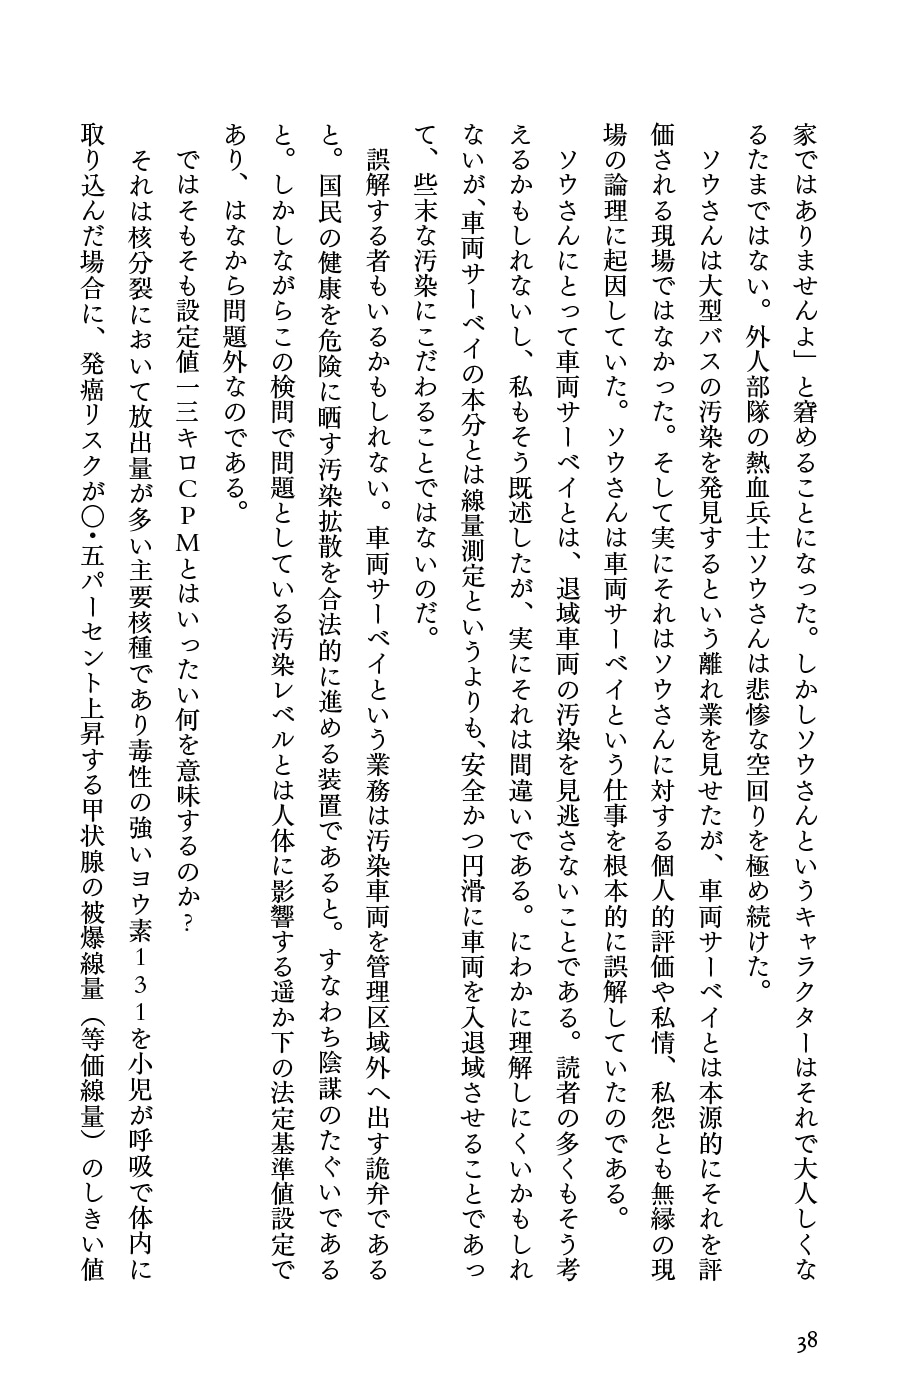 家ではありませんよ」と窘めることになった。しかしソウさんというキャラクターはそれで大人しくな
るたまではない。外人部隊の熱血兵士ソウさんは悲惨な空回りを極め続けた。
ソウさんは大型バスの汚染を発見するという離れ業を見せたが、車両サーベイとは本源的にそれを評
価される現場ではなかった。そして実にそれはソウさんに対する個人的評価や私情、私怨とも無縁の現
場の論理に起因していた。ソウさんは車両サーベイという仕事を根本的に誤解していたのである。
ソウさんにとって車両サーベイとは、退域車両の汚染を見逃さないことである。読者の多くもそう考
えるかもしれないし、私もそう既述したが、実にそれは間違いである。にわかに理解しにくいかもしれ
ないが、車両サーベイの本分とは線量測定というよりも、安全かつ円滑に車両を入退域させることであっ
て、些末な汚染にこだわることではないのだ。
誤解する者もいるかもしれない。車両サーベイという業務は汚染車両を管理区域外へ出す詭弁である
と。国民の健康を危険に晒す汚染拡散を合法的に進める装置であると。すなわち陰謀のたぐいである
と。しかしながらこの検問で問題としている汚染レベルとは人体に影響する遥か下の法定基準値設定で
あり、はなから問題外なのである。
ではそもそも設定値一三キロCPMとはいったい何を意味するのか?
それは核分裂において放出量が多い主要核種であり毒性の強いヨウ素131を小児が呼吸で体内に
取り込んだ場合に、発癌リスクが〇・五パーセント上昇する甲状腺の被爆線量(等価線量)のしきい値
38